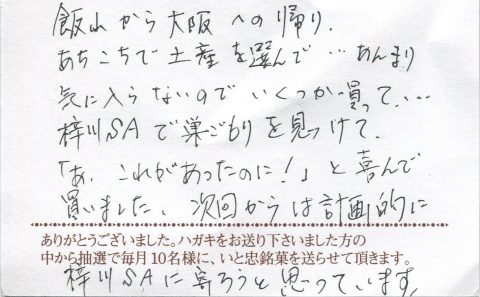 飯山から大阪への帰り、
あちこちで土産を選んで…あんまり
気に入らないのでいくつか買って、…
梓川SAで巣ごもりを見つけて、
「あ、これがあったのに！」と喜んで
買いました、次回からは計画的に
ありがとうございました。ハガキをお送り下さいました方の
中から抽選で毎月10名様に、いと忠銘菓を送らせて頂きます。
梓川SAに寄ろうと思っています